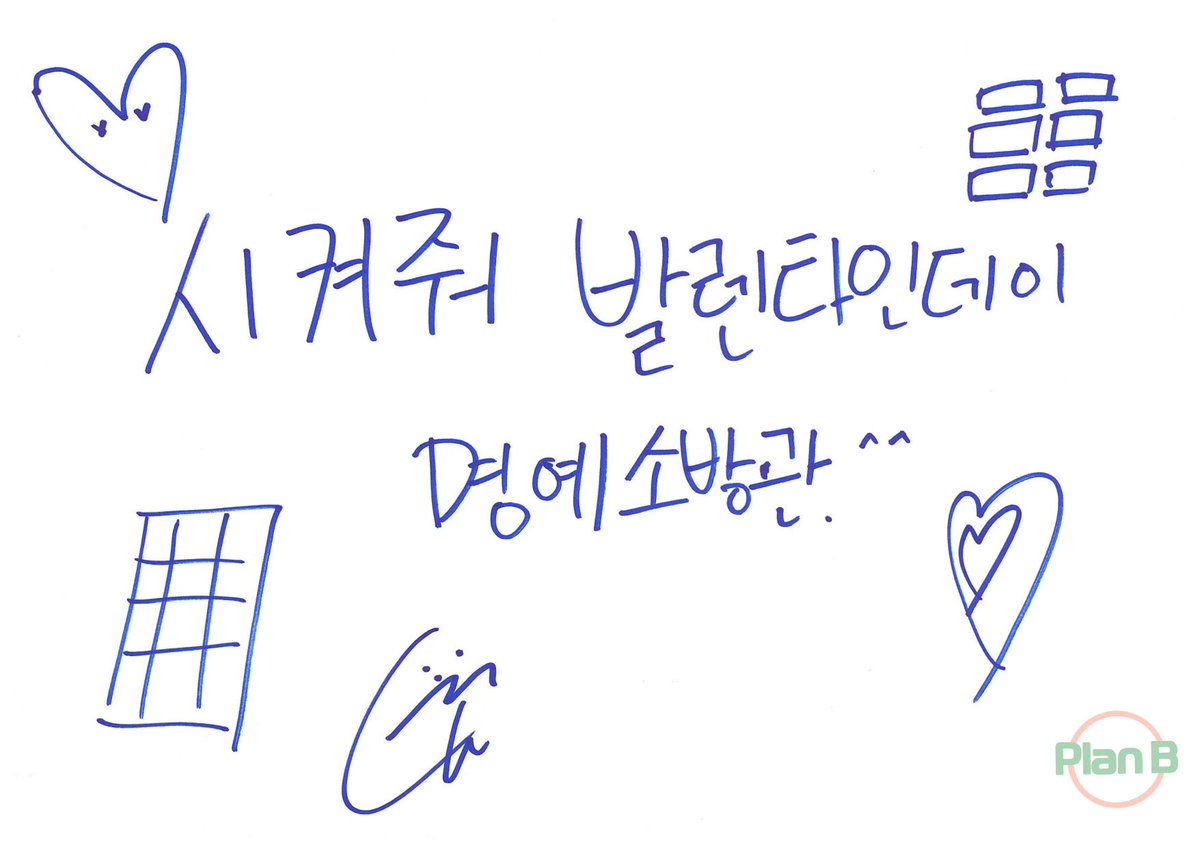 시켜줘 발렌타인데이
명예소방관.^^
Plan B